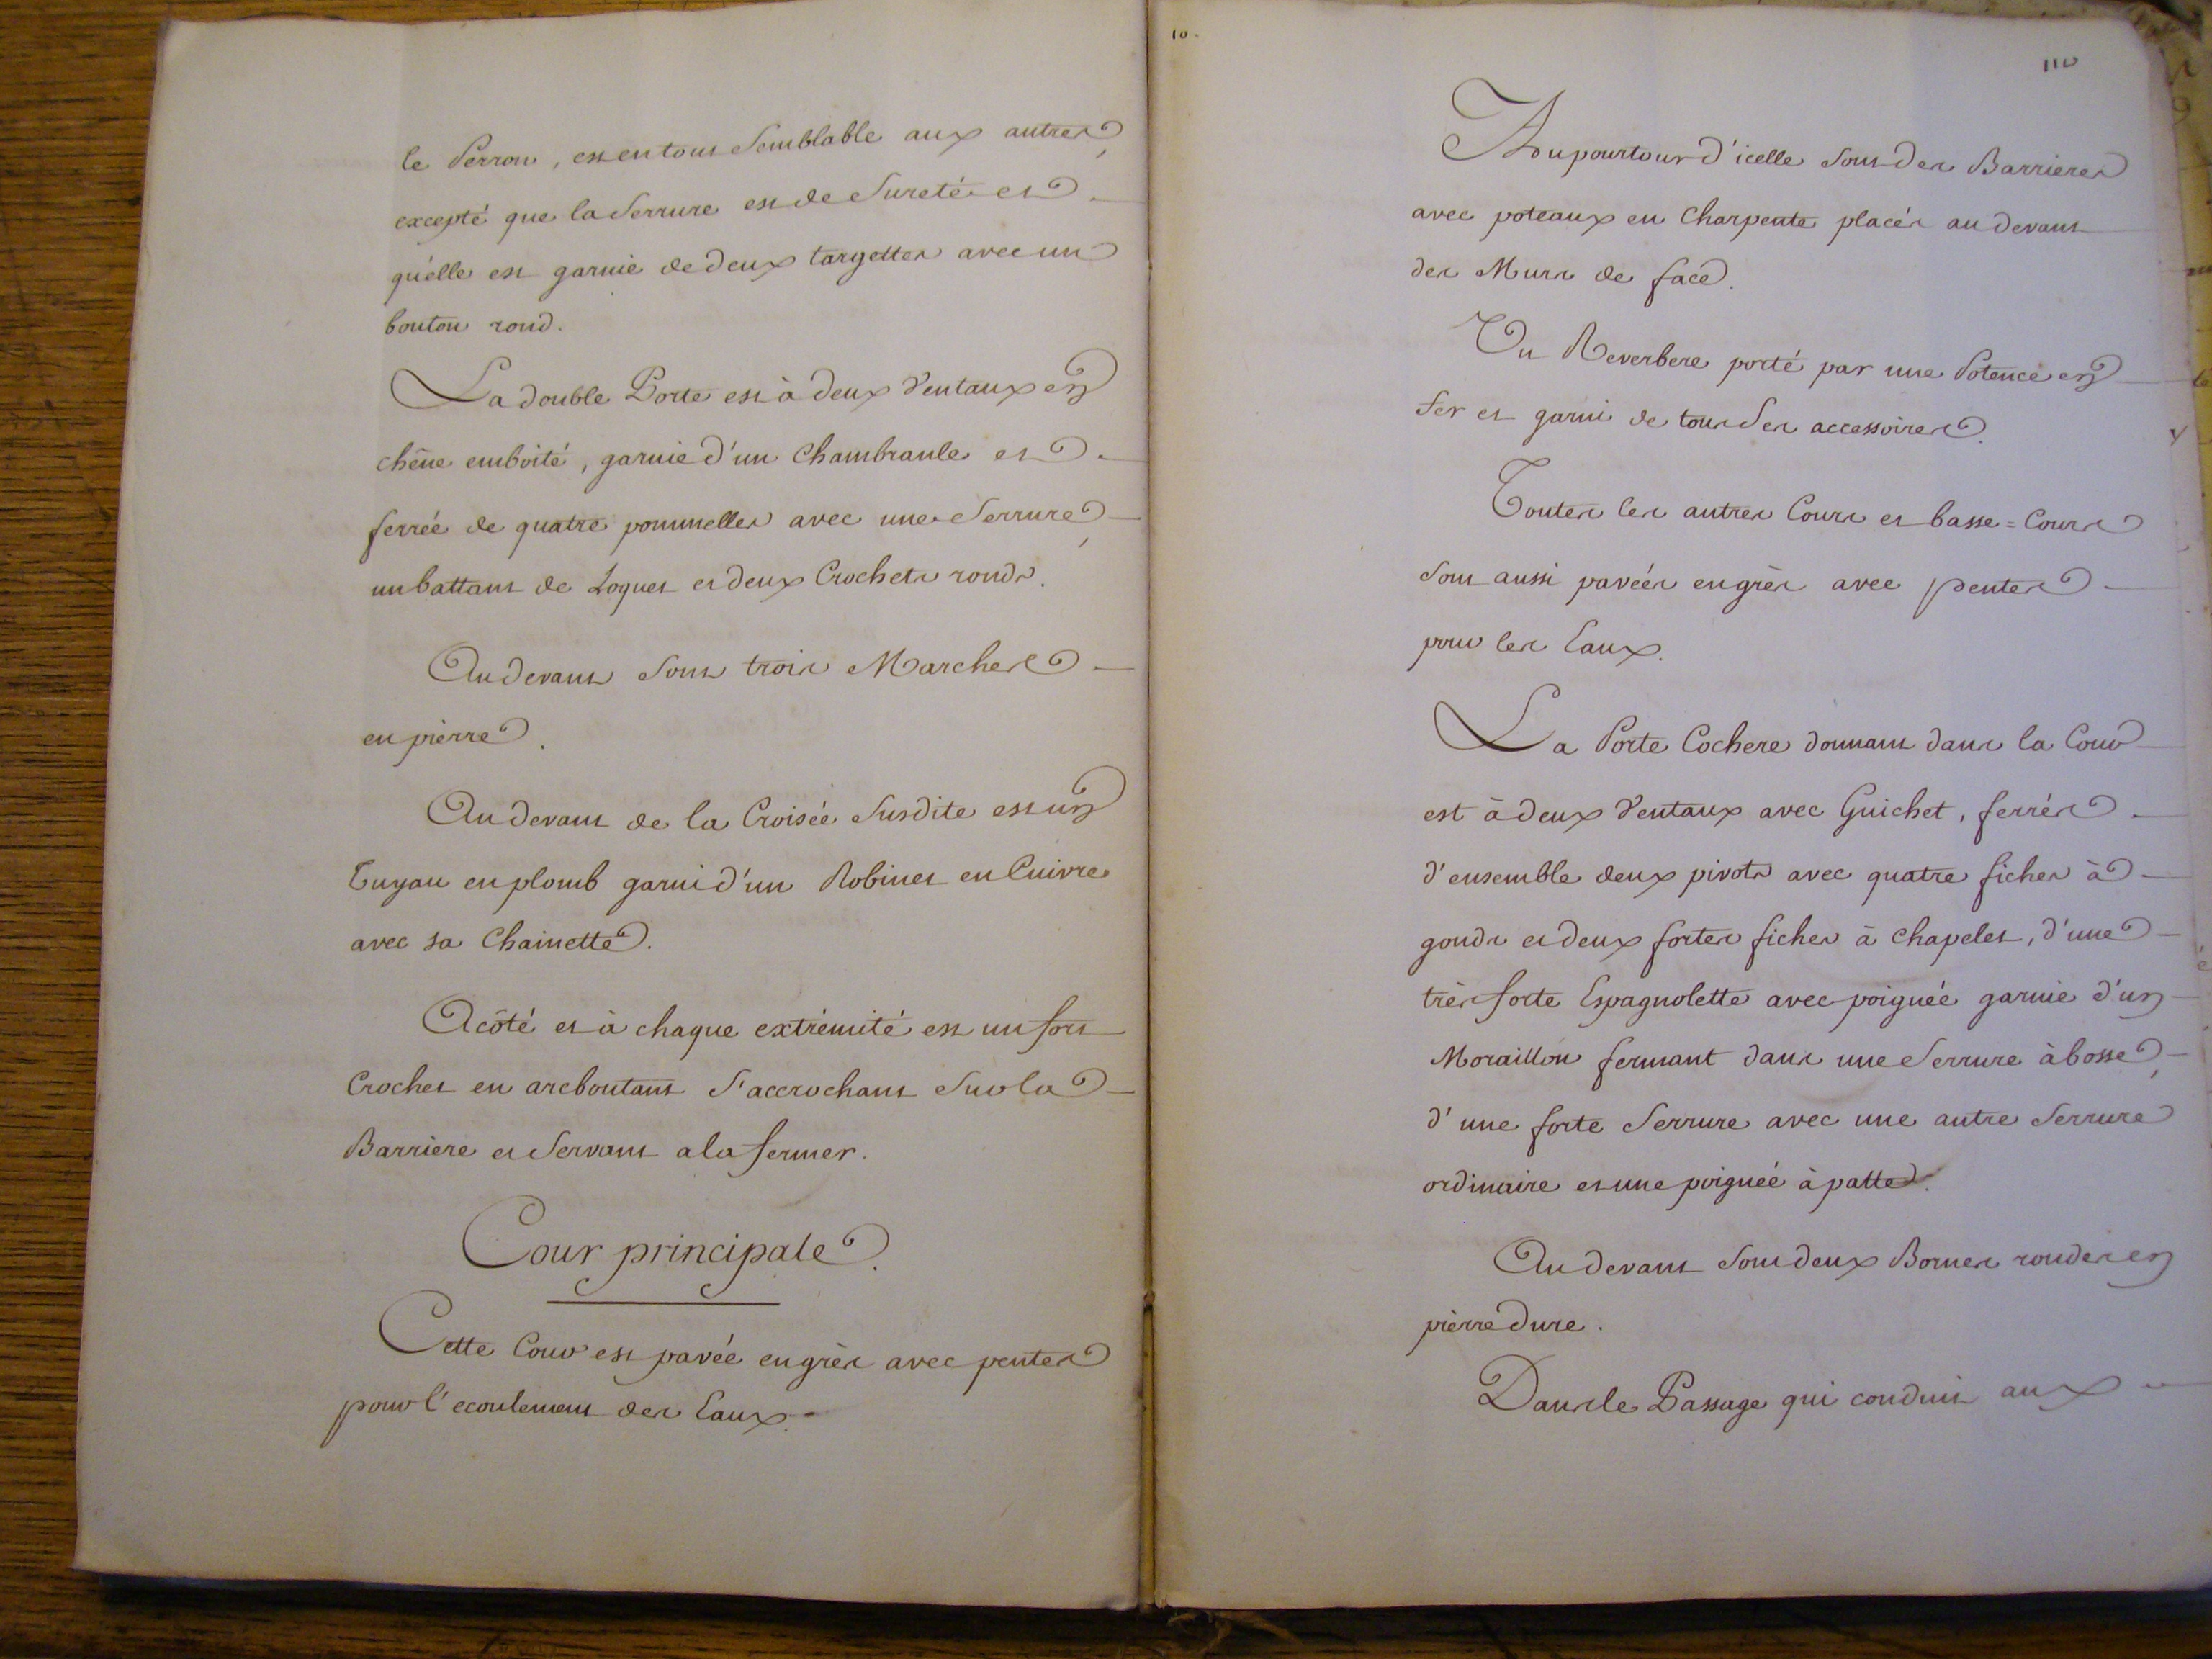 le Perron, est en tout Semblable aux autres,
excepté que la Serrure est de Sureté et
qu'elle est garnie de deux targettes avec un
bouton rond.
La double Porte est à deux Ventaux en
chêne emboité, garnie d'un Chambranle et
ferrée de quatre pommelles avec une Serrure,
un battant de Loquet et deux Crochets ronds.
Au devant Sont trois Marches
en pièrre.
Au devant de la Croisée Susdite est un
Tuyau en plomb garni d'un Robinet en Cuivre
avec sa Chainette.
A côté et à chaque extrémité est un fort
Crochet en arcboutant S'accrochant Sur la
Barrière et Servant a la fermer.
Cour principale.
Cette Cour est pavée en grès avec pentes
pour l'ecoulement des Eaux.
10.
110
Au pourtour d'icelle Sont des Barrieres
avec poteaux en Charpente placés au devant
des Murs de face.
Un Reverbere porté par une Potence en
fer et garni de tous Ses accessoires.
Toutes les autres Cours et basse=Cours
Sont aussi pavées en grès avec pentes
pour les Eaux.
La Porte Cochere donnant dans la Cour
est à deux Ventaux avec Guichet, ferrés
d'ensemble deux pivots avec quatre fiches à
gonds et deux fortes fiches à chapelet, d'une
très forte Espagnolette avec poignée garnie d'un
Moraillon fermant dans une Serrure à bosse,
d'une forte Serrure avec une autre Serrure
ordinaire et une poignée à patte.
Au devant Sont deux Bornes rondes en
pièrre dure.
Dans le Passage qui conduit aux